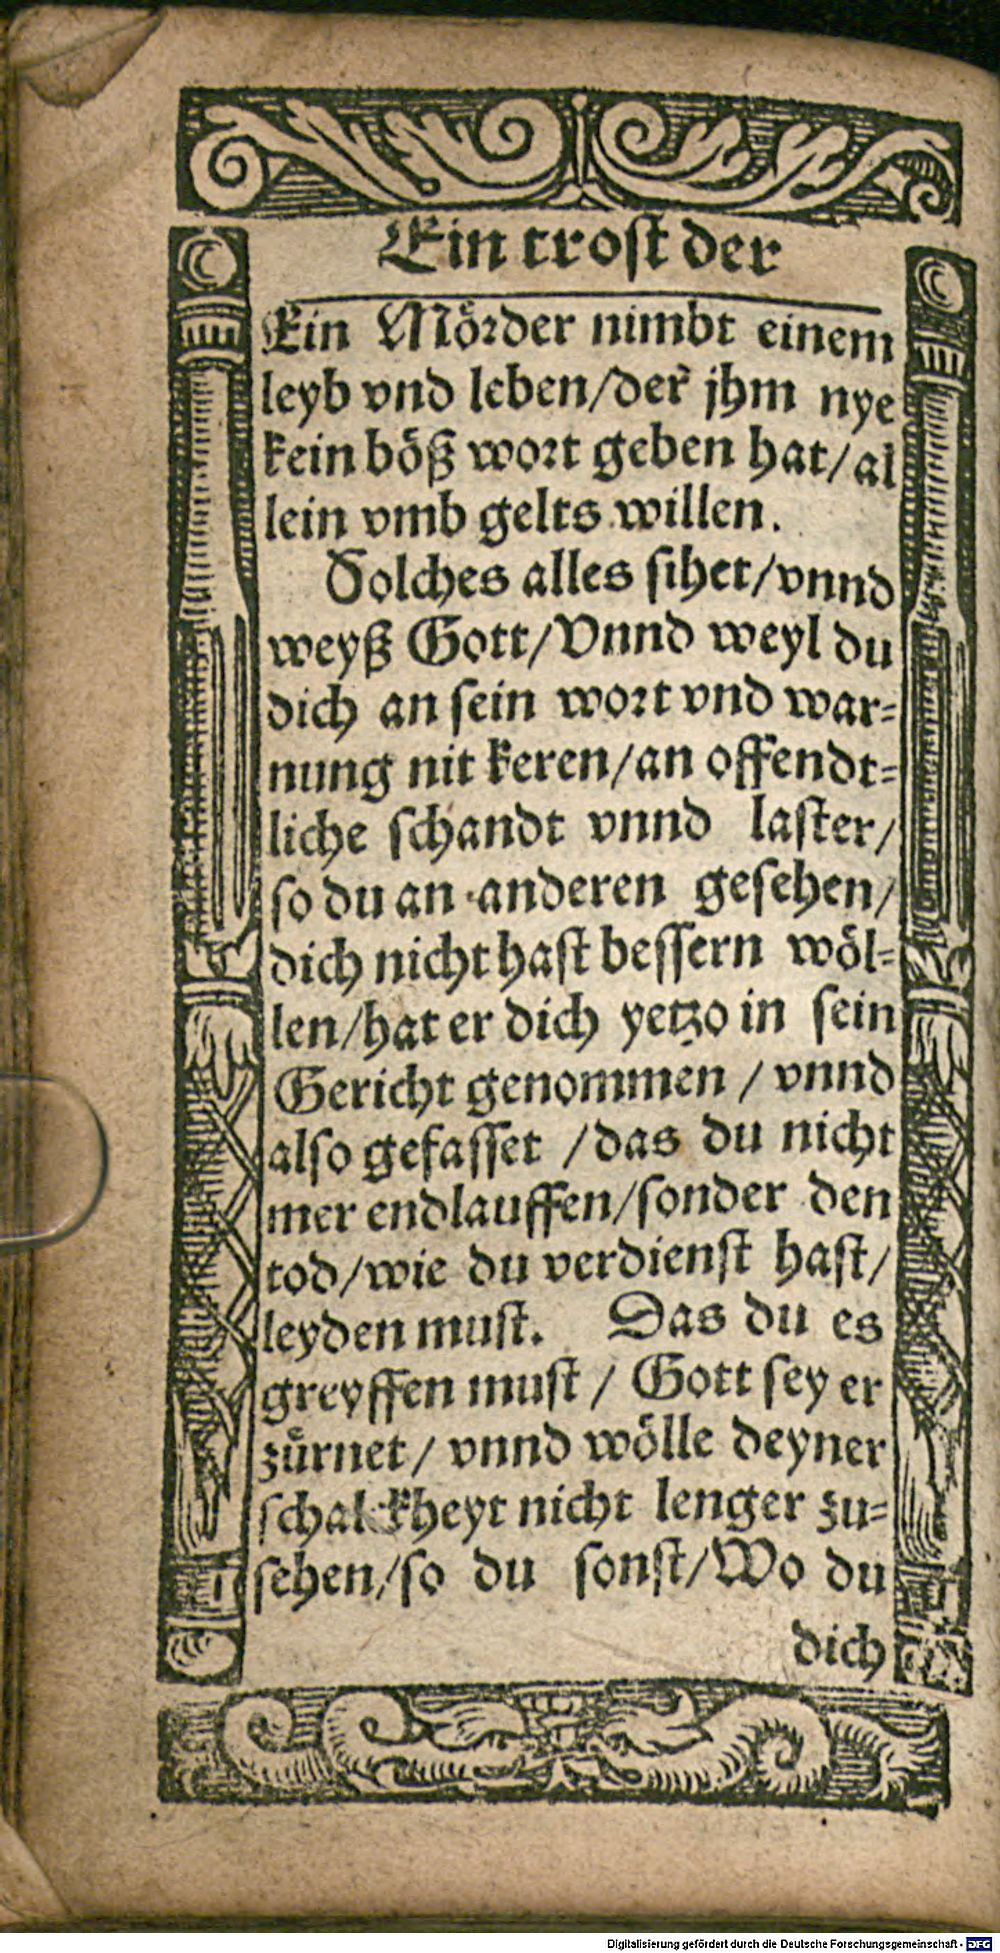 Ein trost der
Ein Mörder nimbt einem
leyb vnd leben/der jhm nye
kein böß wort geben hat/al
lein vmb gelts willen.
Solches alles sihet/vnnd
weyß Gott/Vnnd weyl du
dich an sein wort vnd war-
nung nit keren/an offendt-
liche schandt vnnd laster/
so du an anderen gesehen/
dich nicht hast bessern wöl-
len/hat er dich yetzo in sein
Gericht genommen / vnnd
also gefasset /das du nicht
mer endlauffen/sonder den
tod/wie du verdienst hast/
leyden must. Das du es
greyffen must / Gott sey er
zůrnet / vnnd wölle deyner
schalckheyt nicht lenger zu-
sehen/so du sonst/Wo du
dich
Digitalisierung gefördert durch die Deutsche Forschungsgemeinschaft - DFG